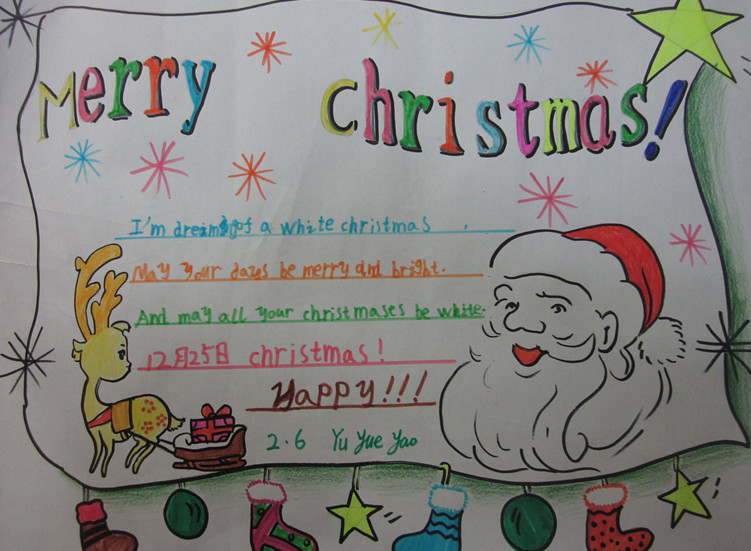 Merry Christmas!
I'm dreaming of a white christmas .
May Your days be merry and bright.
And may all your christmases be white.
12月25日 christmas!
Happy!!!
2.6 Yu Yue Yao